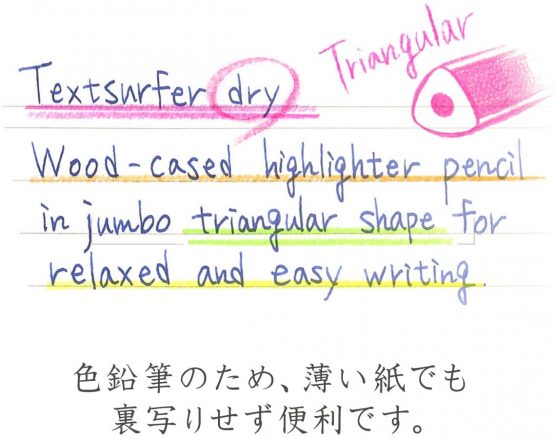 Triangular
Textsurfer dry
Wood-cased highlighter pencil
in jumbo triangular shape for
relaxed and easy writing.
色鉛筆のため、薄い紙でも
裏写りせず便利です。